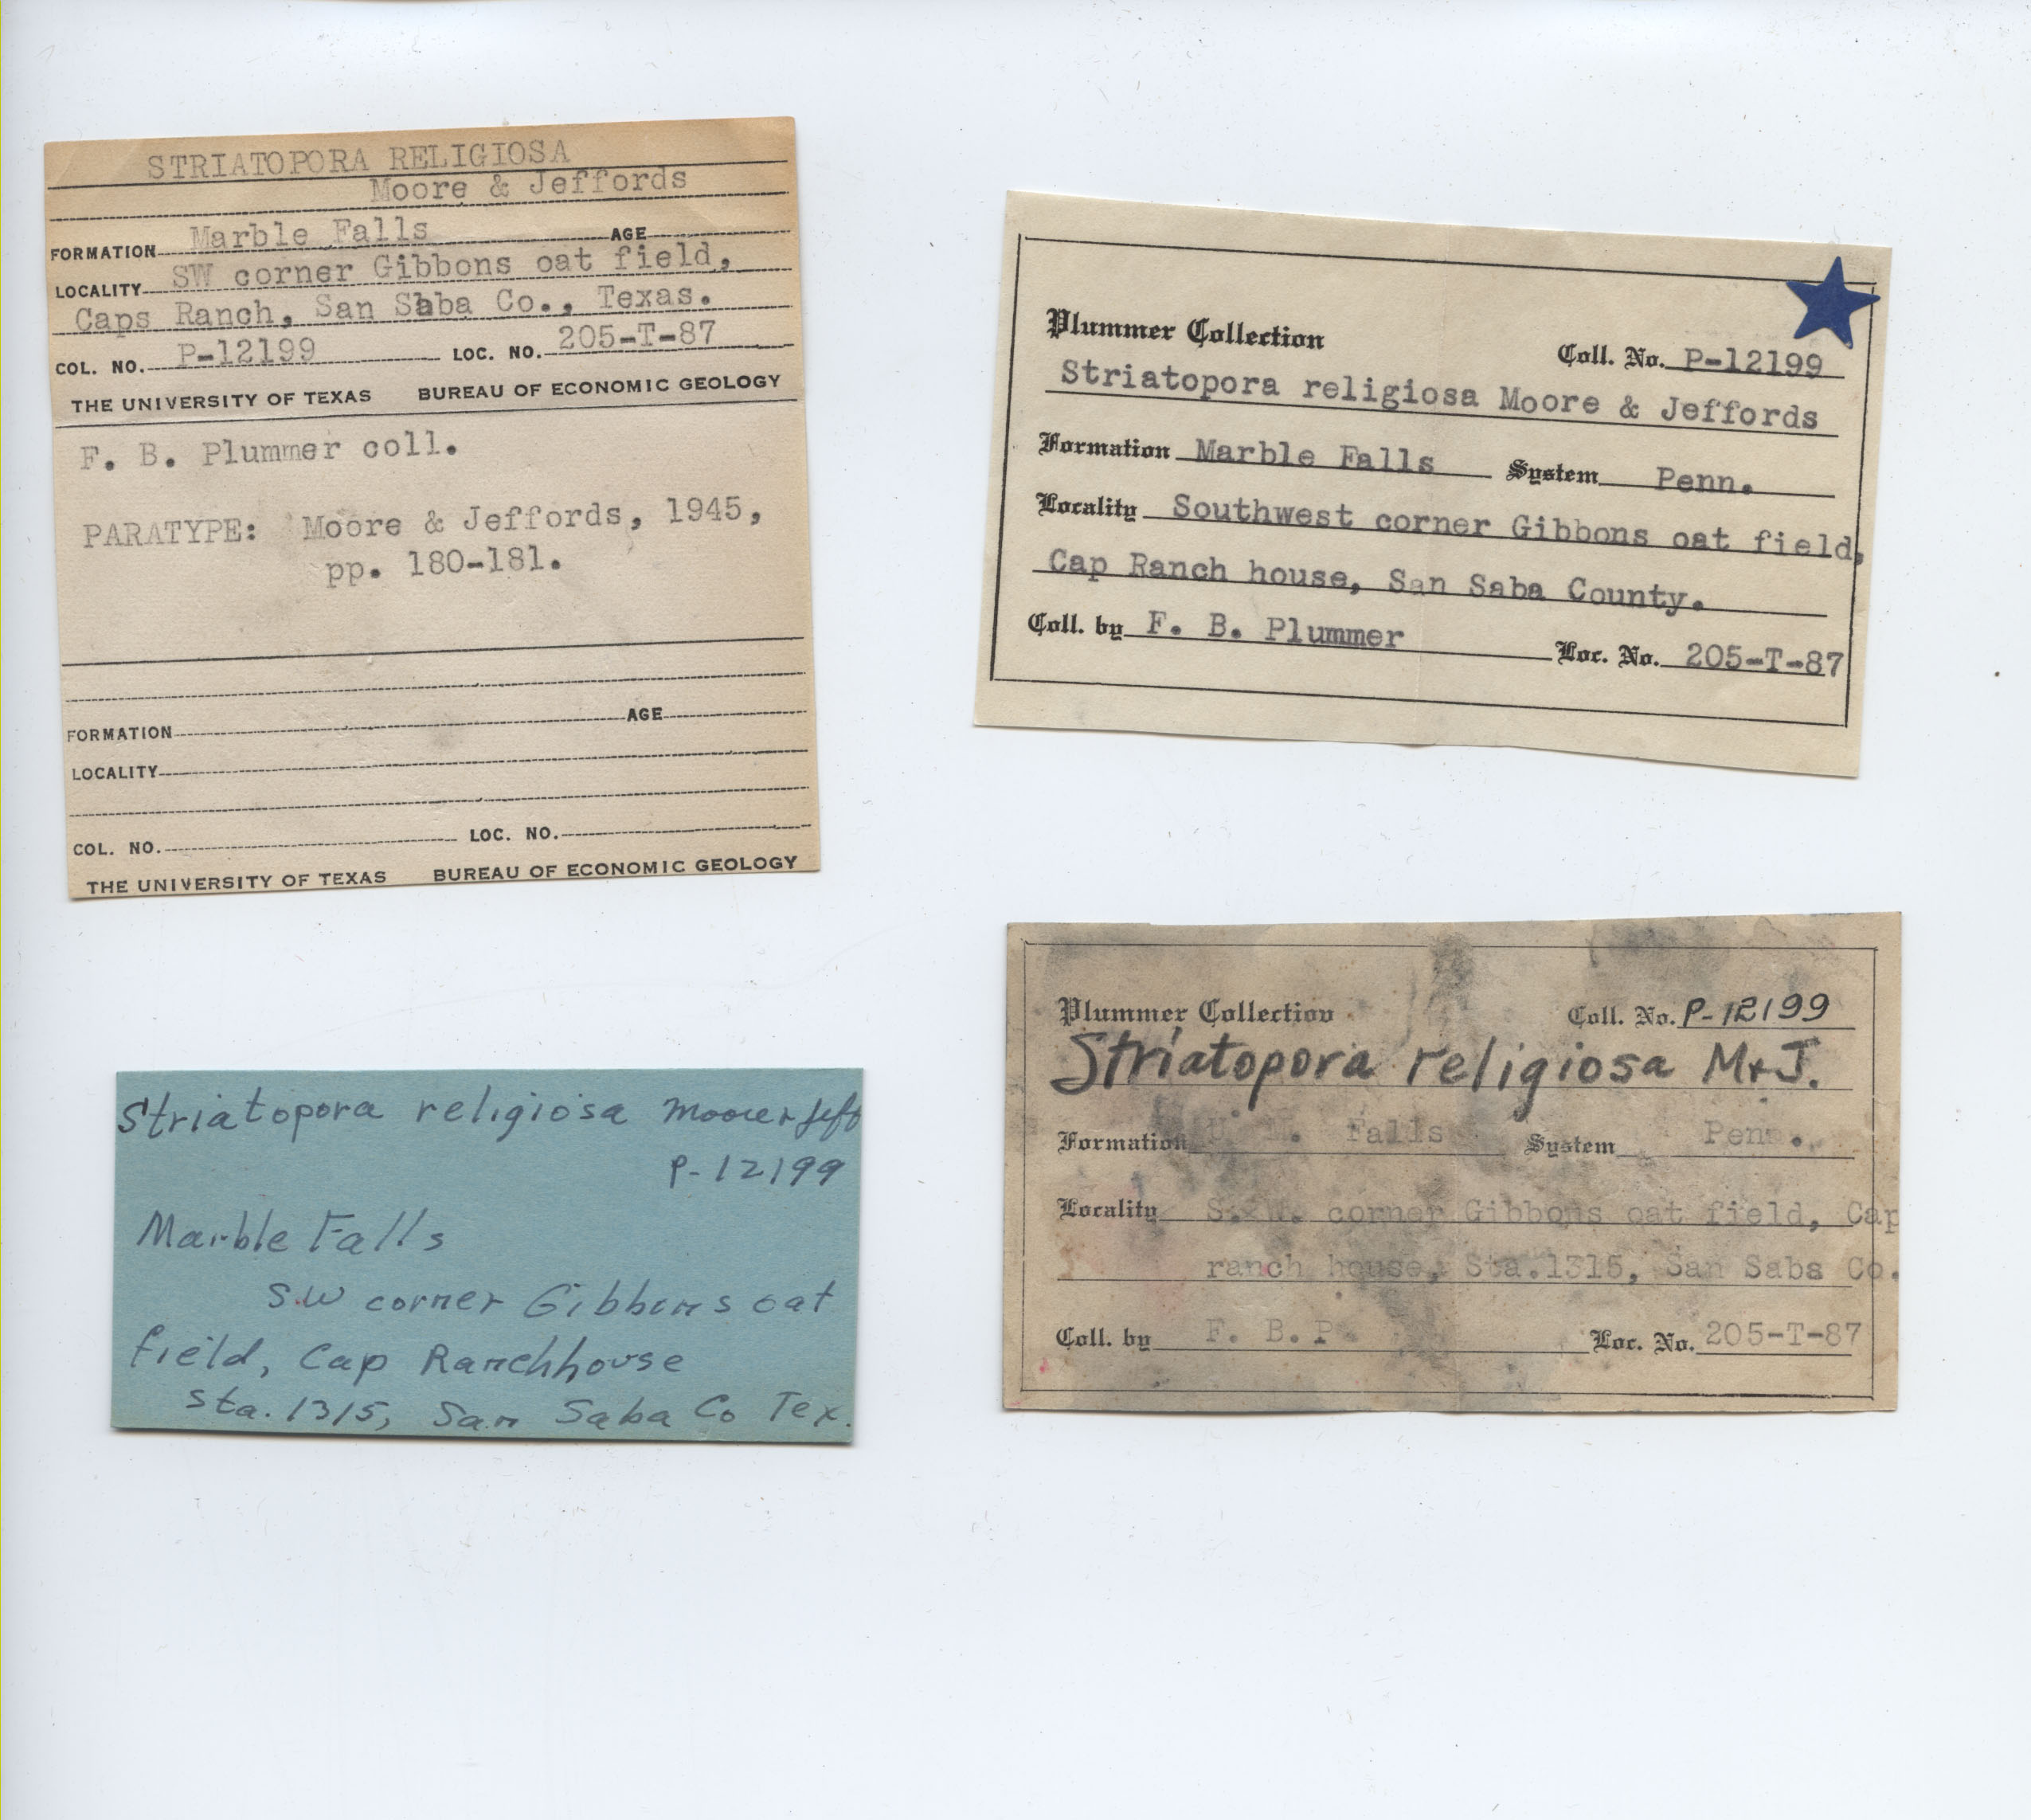 STRIATOPORA RELIGIOSA
Moore & Jeffords
FORMATION Marble Falls AGE
LOCALITY SW corner Gibbons oat field,
Caps Ranch, San Saba Co., Texas.
COL. NO. P-12199 LOC. NO. 205-T-87
THE UNIVERSITY OF TEXAS BUREAU OF ECONOMIC GEOLOGY
F. B. Plummer coll.
PARATYPE: Moore & Jeffords, 1945,
pp. 180-181.
FORMATION AGE
LOCALITY
COL. NO. LOC. NO.
THE UNIVERSITY OF TEXAS BUREAU OF ECONOMIC GEOLOGY
Plummer Collection Coll. No. P-12199
Striatopora religiosa Moore & Jeffords
Formation Marble Falls System Penn.
Locality Southwest corner Gibbons oat field,
Cap Ranch house, San Saba County.
Coll. by F. B. Plummer Loc. No. 205-T-87
Striatopora religiosa Moore & Jeff
P-12199
Marble Falls
SW corner Gibbons oat
field, Cap Ranchhouse
Sta. 1315, San Saba Co Tex.
Plummer Collection Coll. No. P-12199
Striatopora religiosa M+J.
Formation U. M. Falls System Penn.
Locality S. W. corner Gibbons oat field, Cap
ranch house, Sta.1315, San Saba Co.
Coll. by F. B. P. Loc. No. 205-T-87